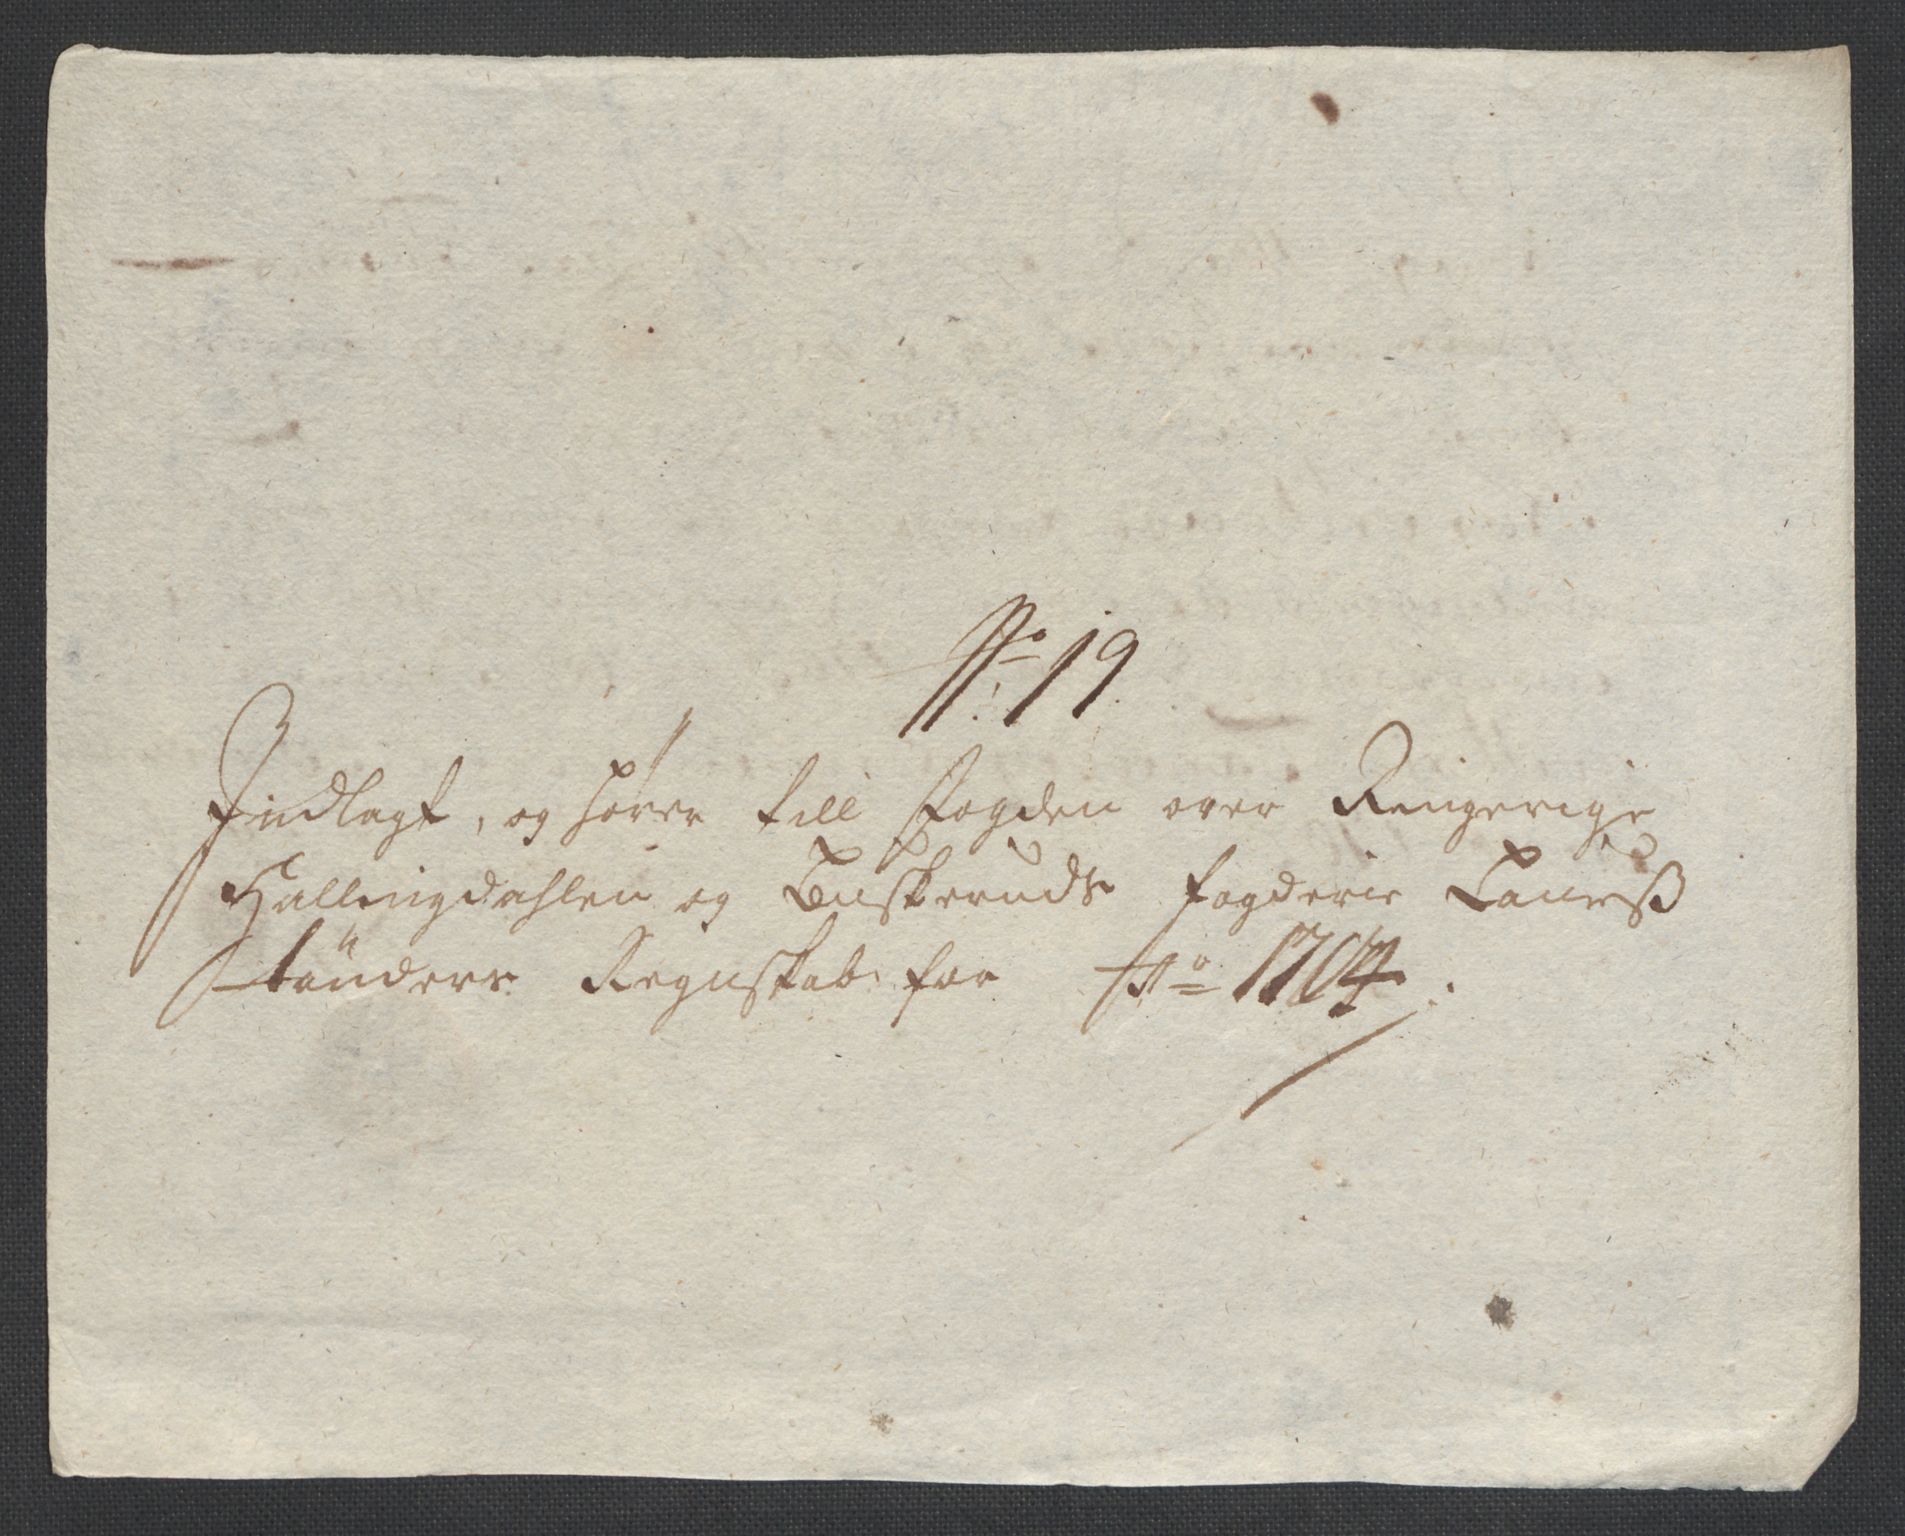 No 19
Indlagt, og hörer till fogden over Ringerige
Hallingdahlen og Buskeruds fogderie Lauriß
Regnskab for Ao 1704.